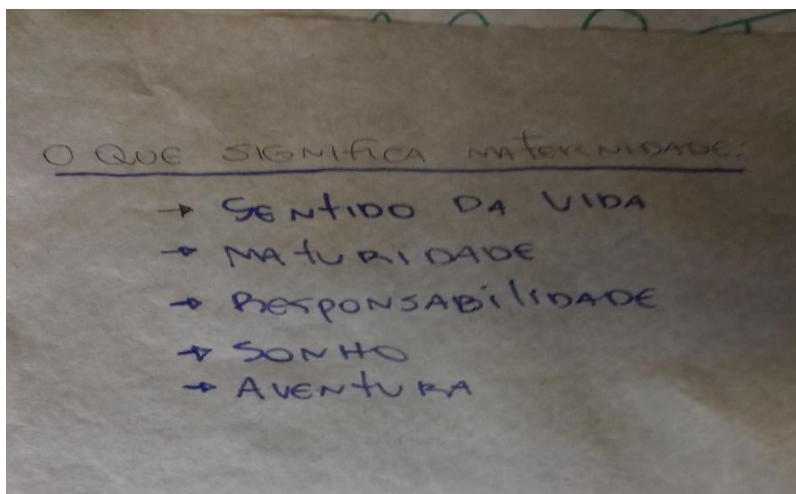 O QUE SIGNIFICA MATERNIDADE:
→ SENTIDO DA VIDA
→ MATURIDADE
→ RESPONSABILIDADE
→ SONHO
→ AVENTURA